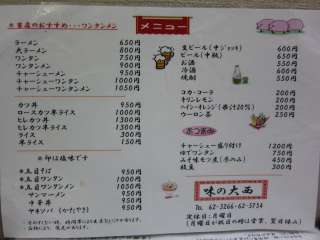 ＊当店のおすすめ・・・ワンタンメン
ラーメン 650円
大ラーメン 800円
ワンタン 750円
ワンタンメン 900円
チャーシューメン 950円
チャーシューワンタン 1000円
チャーシューワンタンメン 1050円
カツ丼 950円
ロースカツ丼ライス 1000円
ヒレカツ丼 1300円
ヒレカツ丼ライス 1300円
ライス 300円
半ライス 150円
＊印は塩味です
＊五目そば 950円
＊五目ワンタン 1000円
＊五目ワンタンメン 1050円
サンマーメン 950円
中華丼 950円
ヤキソバ（かたやき） 950円
メニュー
生ビール（中ジョッキ） 600円
ビール（中瓶） 650円
お酒 550円
冷酒 600円
焼酎 550円
コカ・コーラ 200円
キリンレモン 200円
ウーロン茶 250円
チャーシュー盛り付け 1200円
ゆでワンタン 750円
枝豆 300円
味の大西
TEL 0465-62-5734
定休日：月曜日
（月曜日が祝日の時は営業、翌日休み）